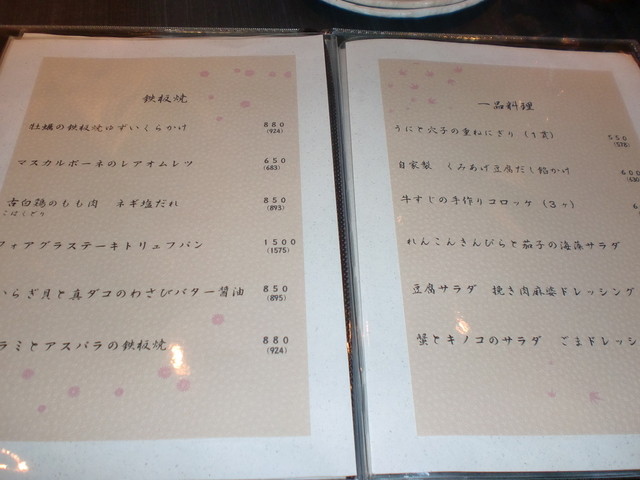 鉄板焼
牡蠣の鉄板焼ゆずいくらかけ 880
(924)
マスカルポーネのレアオムレツ 650
(683)
古白鶏のもも肉 ネギ塩だれ 850
こはくどり (893)
フォアグラステーキトリュフパン 1500
(1575)
いらぎ貝と真ダコのわさびバター醤油 850
(895)
ラミとアスパラの鉄板焼 880
(924)
一品料理
うにと穴子の重ねにぎり(1貫) 550
(578)
自家製 くみあげ豆腐だし餡かけ 600
(630
牛すじの手作りコロッケ(3ヶ) 6
れんこんきんぴらと茄子の海藻サラダ
豆腐サラダ 挽き肉麻婆ドレッシング
蟹とキノコのサラダ ごまドレッシ